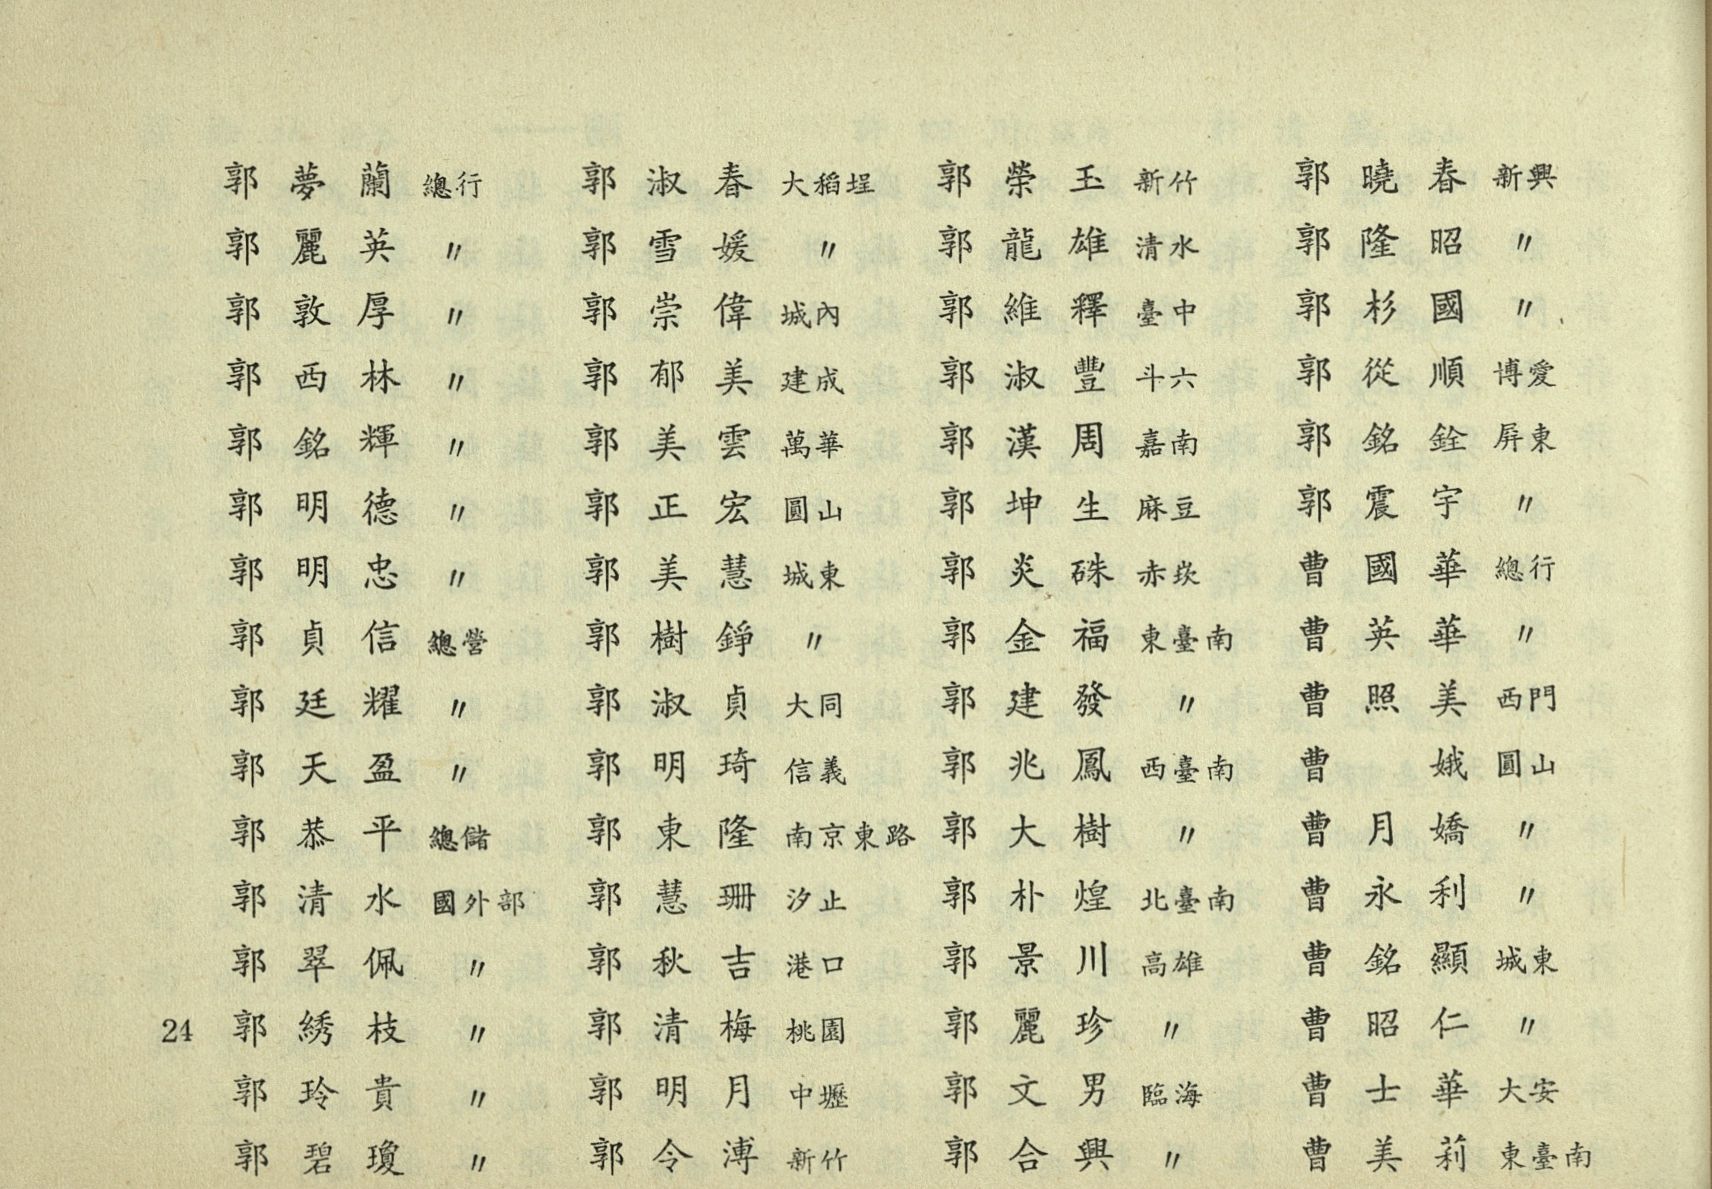 郭夢蘭 總行 郭淑春 大稻埕 郭榮玉 新竹 郭曉春 新興
郭麗英 〃 郭雪媛 〃 郭龍雄 清水 郭隆昭 〃
郭敦厚 〃 郭崇偉 城內 郭維釋 臺中 郭杉國 〃
郭西林 〃 郭郁美 建成 郭淑豐 斗六 郭從順 博愛
郭銘輝 〃 郭美雲 萬華 郭漢周 嘉南 郭銘銓 屏東
郭明德 〃 郭正宏 圓山 郭坤生 麻豆 郭震宇 〃
郭明忠 〃 郭美慧 城東 郭炎硃 赤崁 曹國華 總行
郭貞信 總營 郭樹錚 〃 郭金福 東臺南 曹英華 〃
郭廷耀 〃 郭淑貞 大同 郭建發 〃 曹照美 西門
郭天盈 〃 郭明琦 信義 郭兆鳳 西臺南 曹娥 圓山
郭恭平 總儲 郭東隆 南京東路 郭大樹 〃 曹月嬌 〃
郭清水 國外部 郭慧珊 汐止 郭朴煌 北臺南 曹永利 〃
郭翠佩 〃 郭秋吉 港口 郭景川 高雄 曹銘顯 城東
24 郭綉枝 〃 郭清梅 桃園 郭麗珍 〃 曹昭仁 〃
郭玲貴 〃 郭明月 中壢 郭文男 臨海 曹士華 大安
郭碧瓊 〃 郭令溥 新竹 郭合興 〃 曹美莉 東臺南